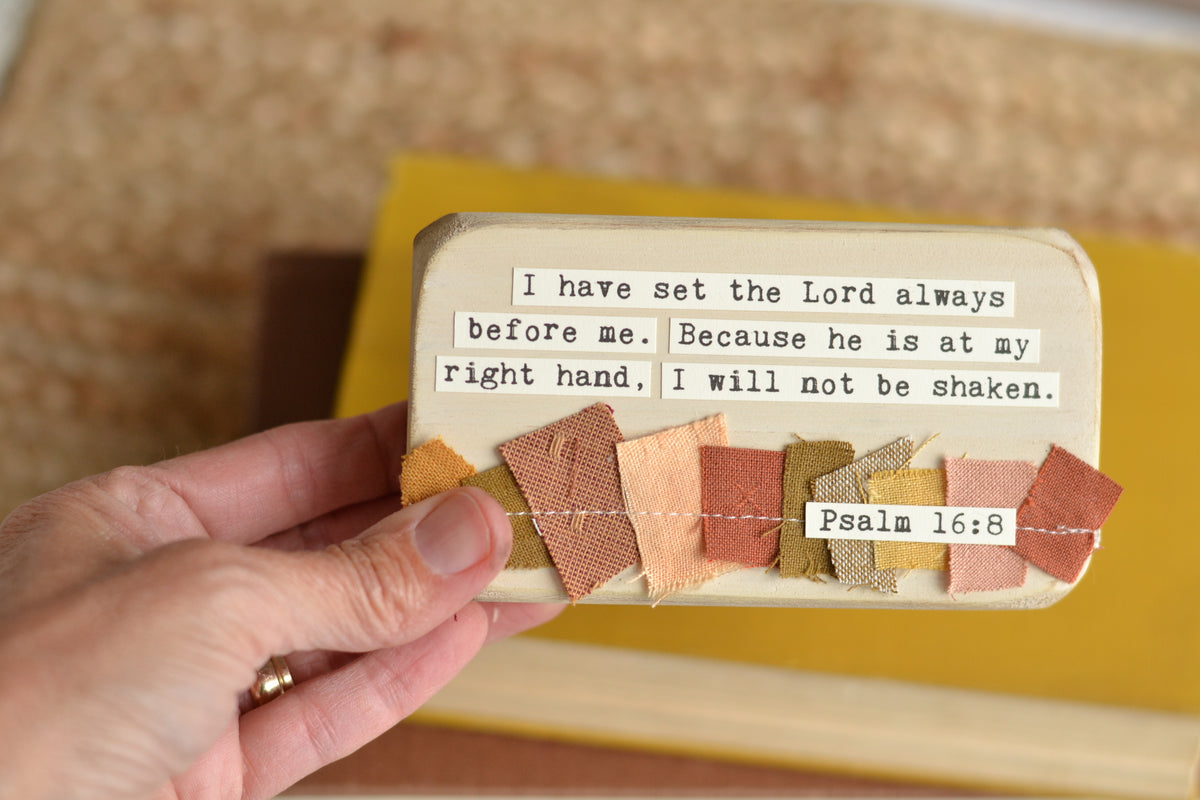 I have set the Lord always
before me. Because he is at my
right hand, I will not be shaken.
Psalm 16:8